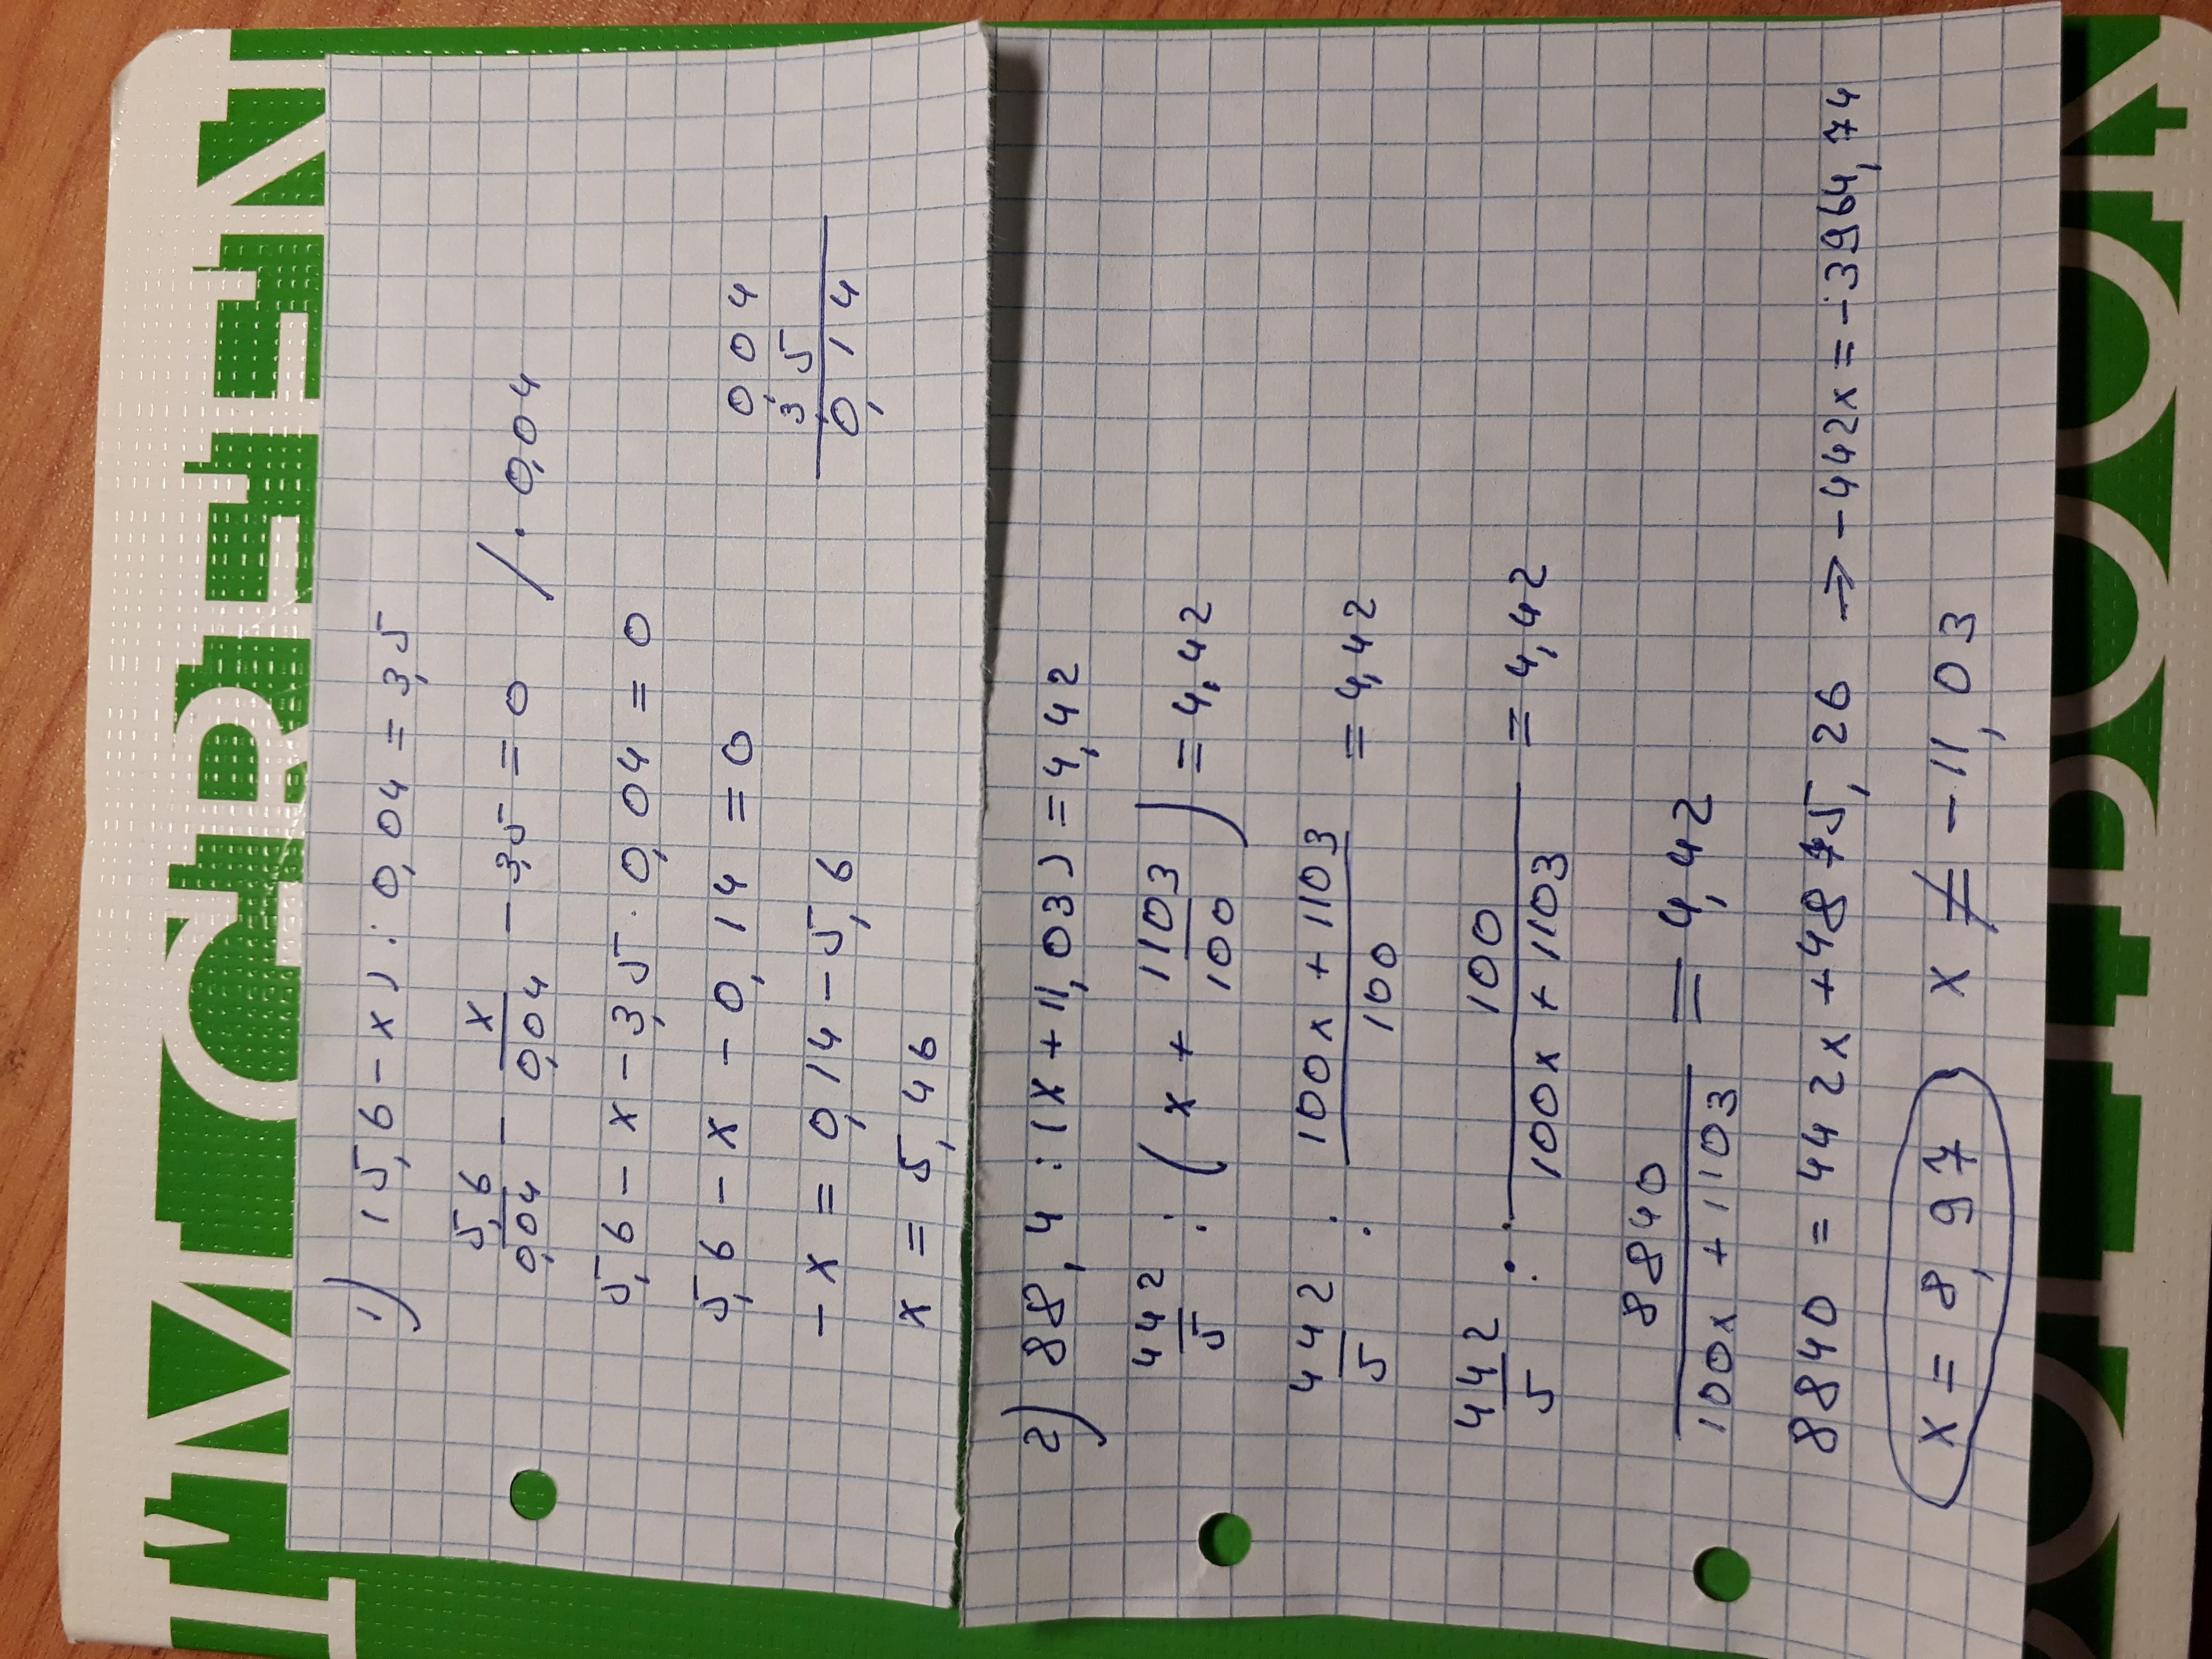 1) (5,6 - x) : 0,04 = 3,5
5,6/0,04 - x/0,04 - 3,5 = 0 / · 0,04
5,6 - x - 3,5 · 0,04 = 0
5,6 - x - 0,14 = 0
- x = 0,14 - 5,6
x = 5,46
0,04
3,5
0,14
2) 88,4 : (x + 11,03) = 4,42
442/5 : (x + 1103/100) = 4,42
442/5 : (100x + 1103)/100 = 4,42
442/5 · 100/(100x + 1103) = 4,42
8840/(100x + 1103) = 4,42
8840 = 442x + 4875,26 → -442x = -3964,74
x = 8,97 x ≠ -11,03